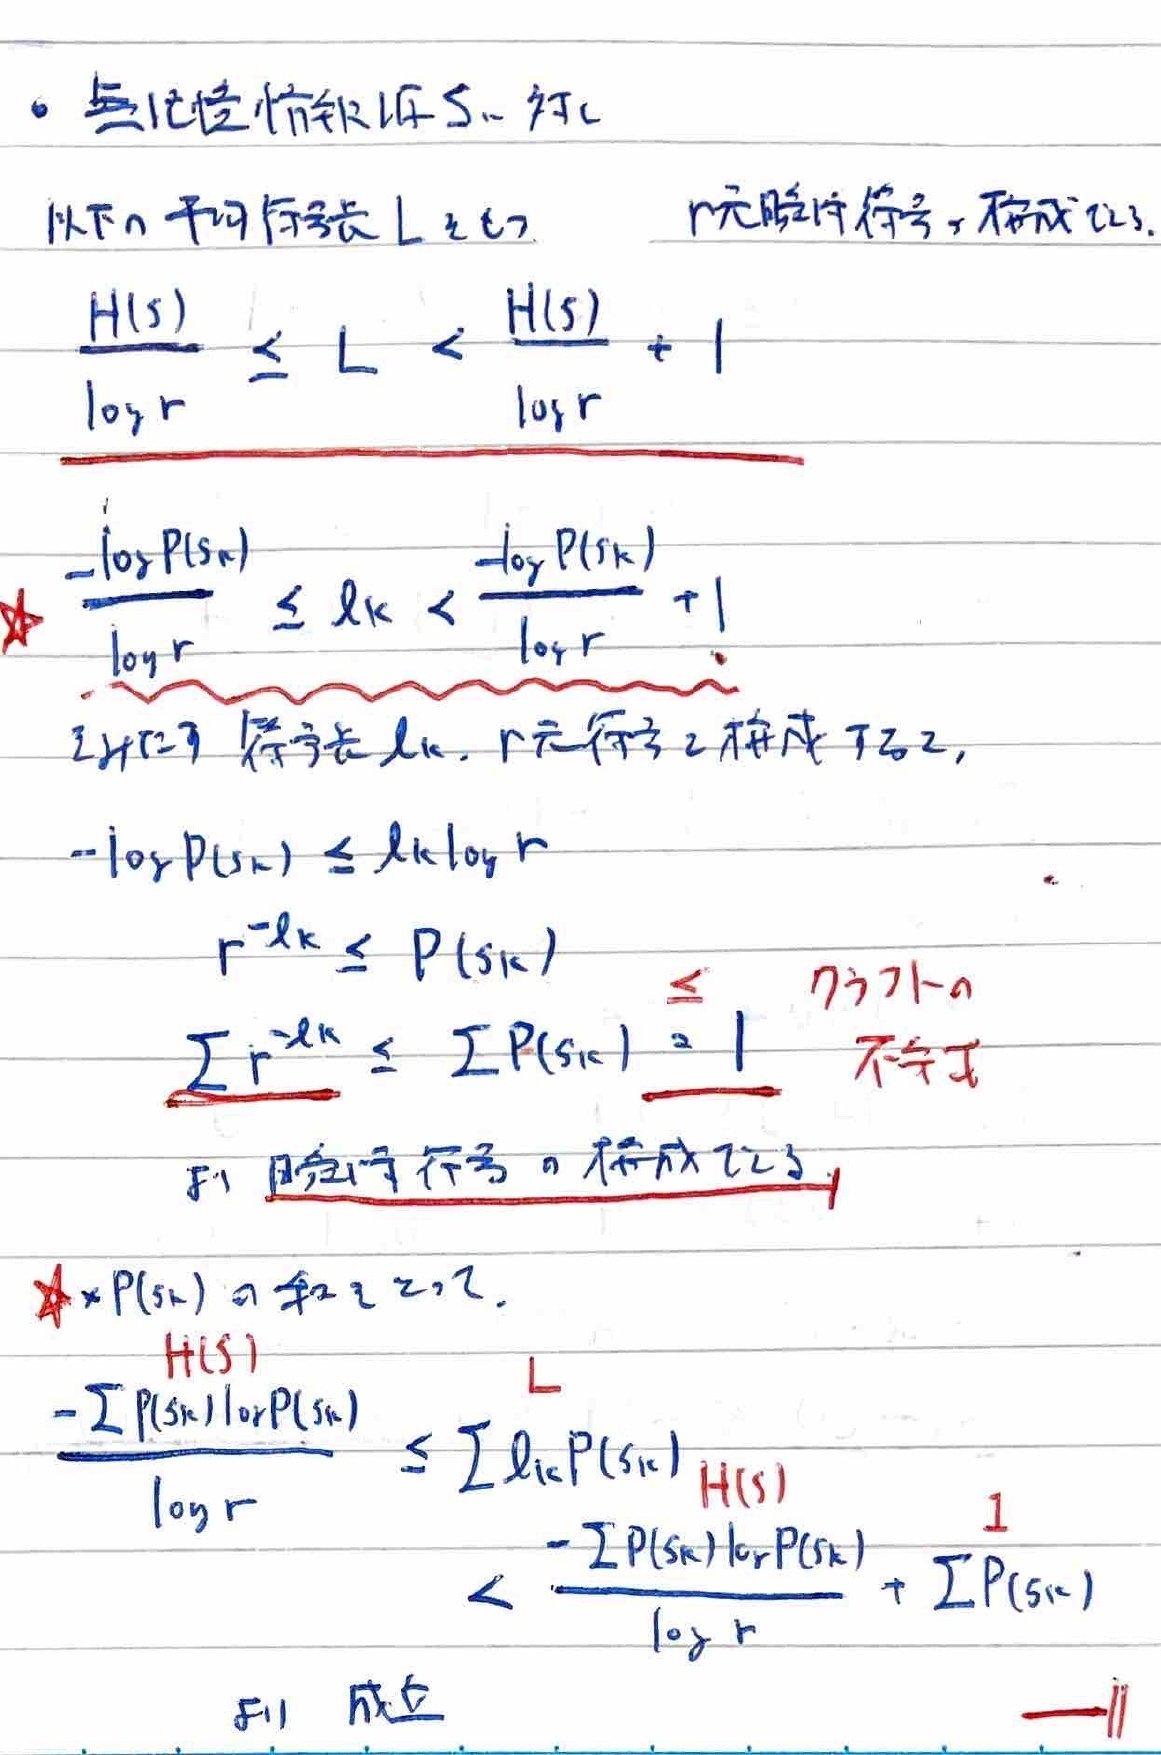 ・無記憶情報源Sに対し
以下の平均符号長Lをもつ r元瞬時符号が構成できる.
H(S)/log r ≤ L < H(S)/log r + 1
☆ -log P(sk)/log r ≤ lk < -log P(sk)/log r + 1
をみたす符号長lk. r元符号を構成すると,
-log P(sk) ≤ lk log r
r^-lk ≤ P(sk)
≤ クラフトの
Σ r^-lk ≤ Σ P(sk) = 1 不等式
より 瞬時符号が構成できる
☆×P(sk)の和をとって.
H(S) L
-Σ P(sk) log P(sk)/log r ≤ Σ lk P(sk)
H(S) 1
< -Σ P(sk) log P(sk)/log r + Σ P(sk)
より 成立